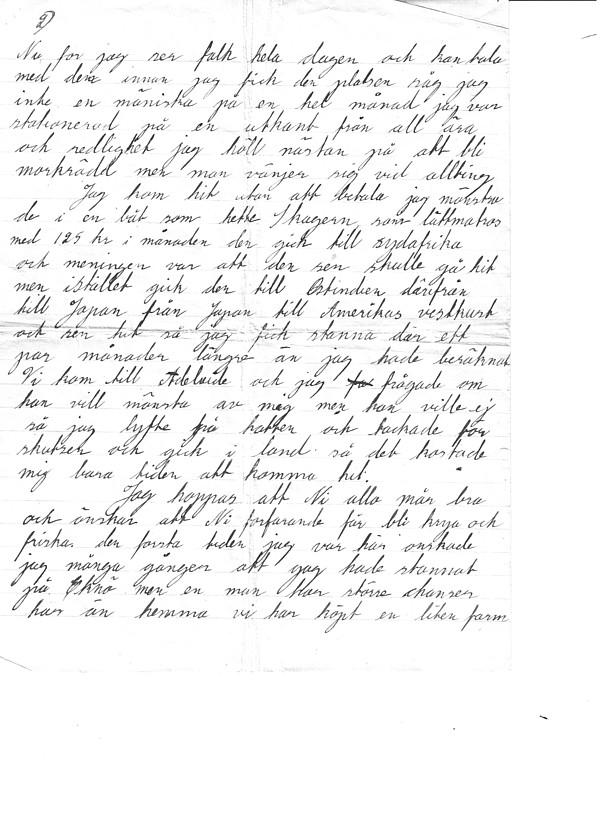 2)
Nu for jag ser folk hela dagen och kan tala
med dem innan jag fick den platsen såg jag
inke en mäniska på en hel månad jag var
stationerad på en utkant från all ära
och redlighet jag höll nästan på att bli
morkrädd men man vänjer sig vid allting
Jag kom hit utan att betala jag mönstra
de i en båt som hette Skagern som lättmatros
med 125 kr i månaden den gick till sydafrika
och meningen var att den sen skulle gå hit
men istället gick den till Ostindien därifrån
till Japan från Japan till Amerikas vestkust
och sen hit så jag fick stanna där ett
par månader längre än jag hade beräknat
Vi kom till Adelaide och jag frågade om
han vill mönsta av mig men han ville ej
så jag lyfte på hatten och tackade för
skutsen och gick i land så det kostade
mig bara tiden att komma hit.
Jag hoppas att Ni alla mår bra
och önskar att Ni forfarande får bli krya och
friska. den forsta tiden jag var här onskade
jag många gånger att jag hade stannat
på Eknö men en man har större chanser
här än hemma vi har köpt en liten farm